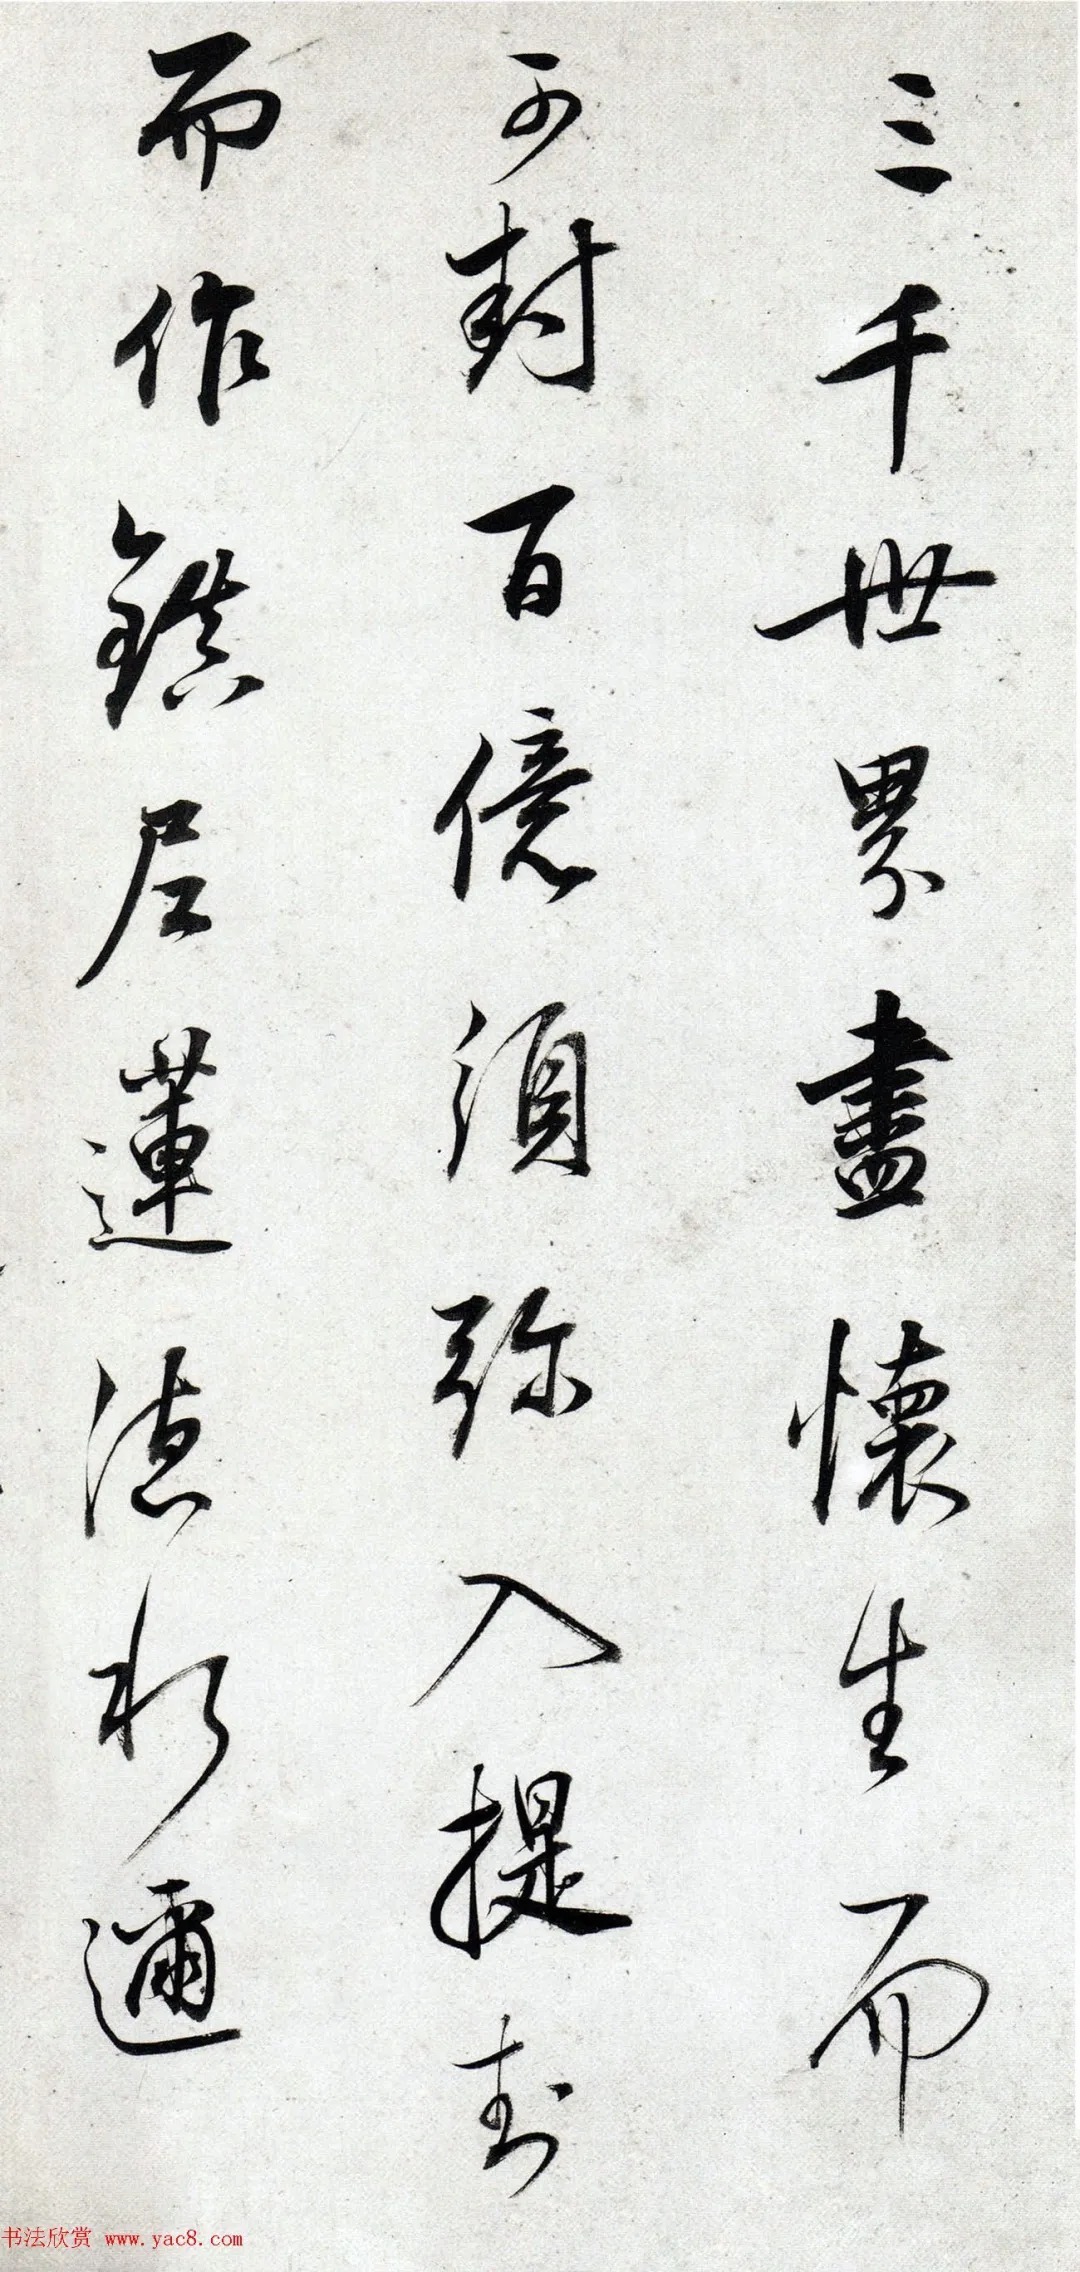 三千世界盡懷生而
可封百億須弥入提封
而作鎮尼蓮德水邇
书法欣赏 www.yac8.com